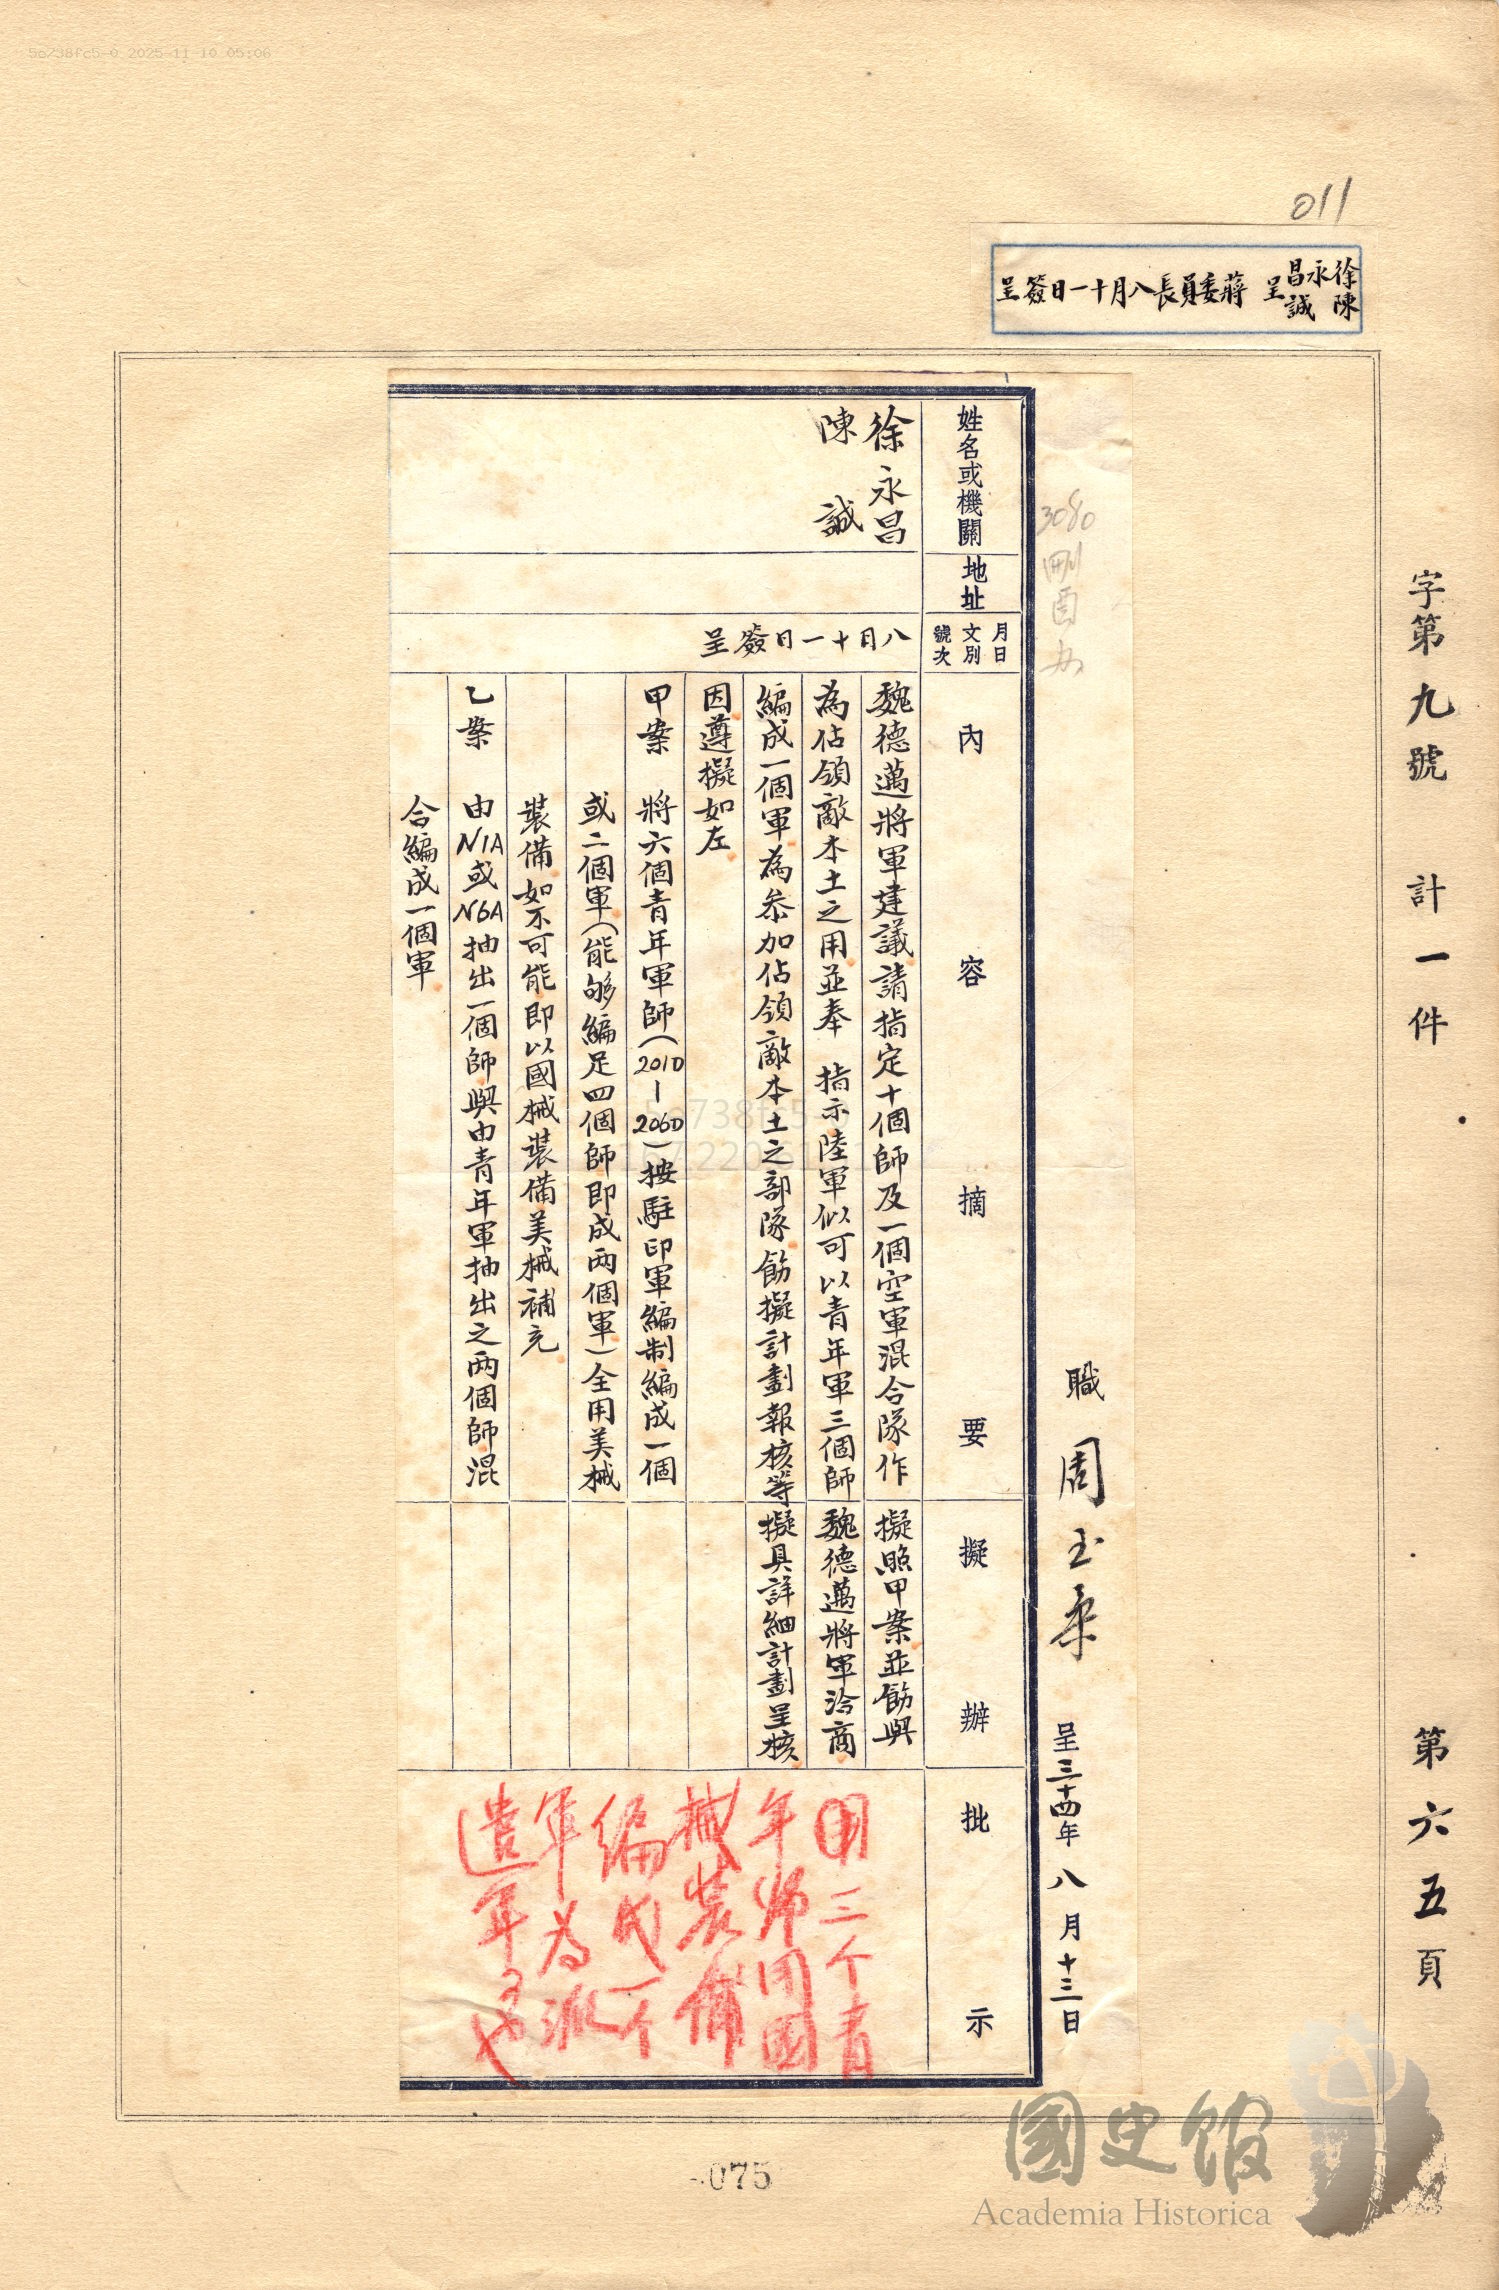 5e738fc5-0 2025-11-10 05:06
011
徐永昌
陳誠
呈 蔣委員長八月十一日簽呈
字第九號 計一件 第六五頁
3080
職 周至柔 呈 三十四年八月十三日
姓名或機關
地址
月日
文別
號次
內容摘要
擬辦
批示
徐永昌
陳誠
八月十一日簽呈
魏德邁將軍建議請指定十個師及一個空軍混合隊作
為佔領敵本土之用並奉 指示陸軍似可以青年軍三個師
編成一個軍為參加佔領敵本土之部隊飭擬計劃報核等
因遵擬如左
甲案 將六個青年軍師(201D—206D)按駐印軍編制編成一個
或二個軍(能够編足四個師即成兩個軍)全用美械
裝備如不可能即以國械裝備美械補充
乙案 由N1A或N6A抽出一個師與由青年軍抽出之兩個師混
合編成一個軍
擬照甲案並飭與
魏德邁將軍洽商
擬具詳細計劃呈核
用三个青
年師用國
械裝備
編成一个
軍為派
遣軍
5e738fc5-0
075
國史館
Academia Historica